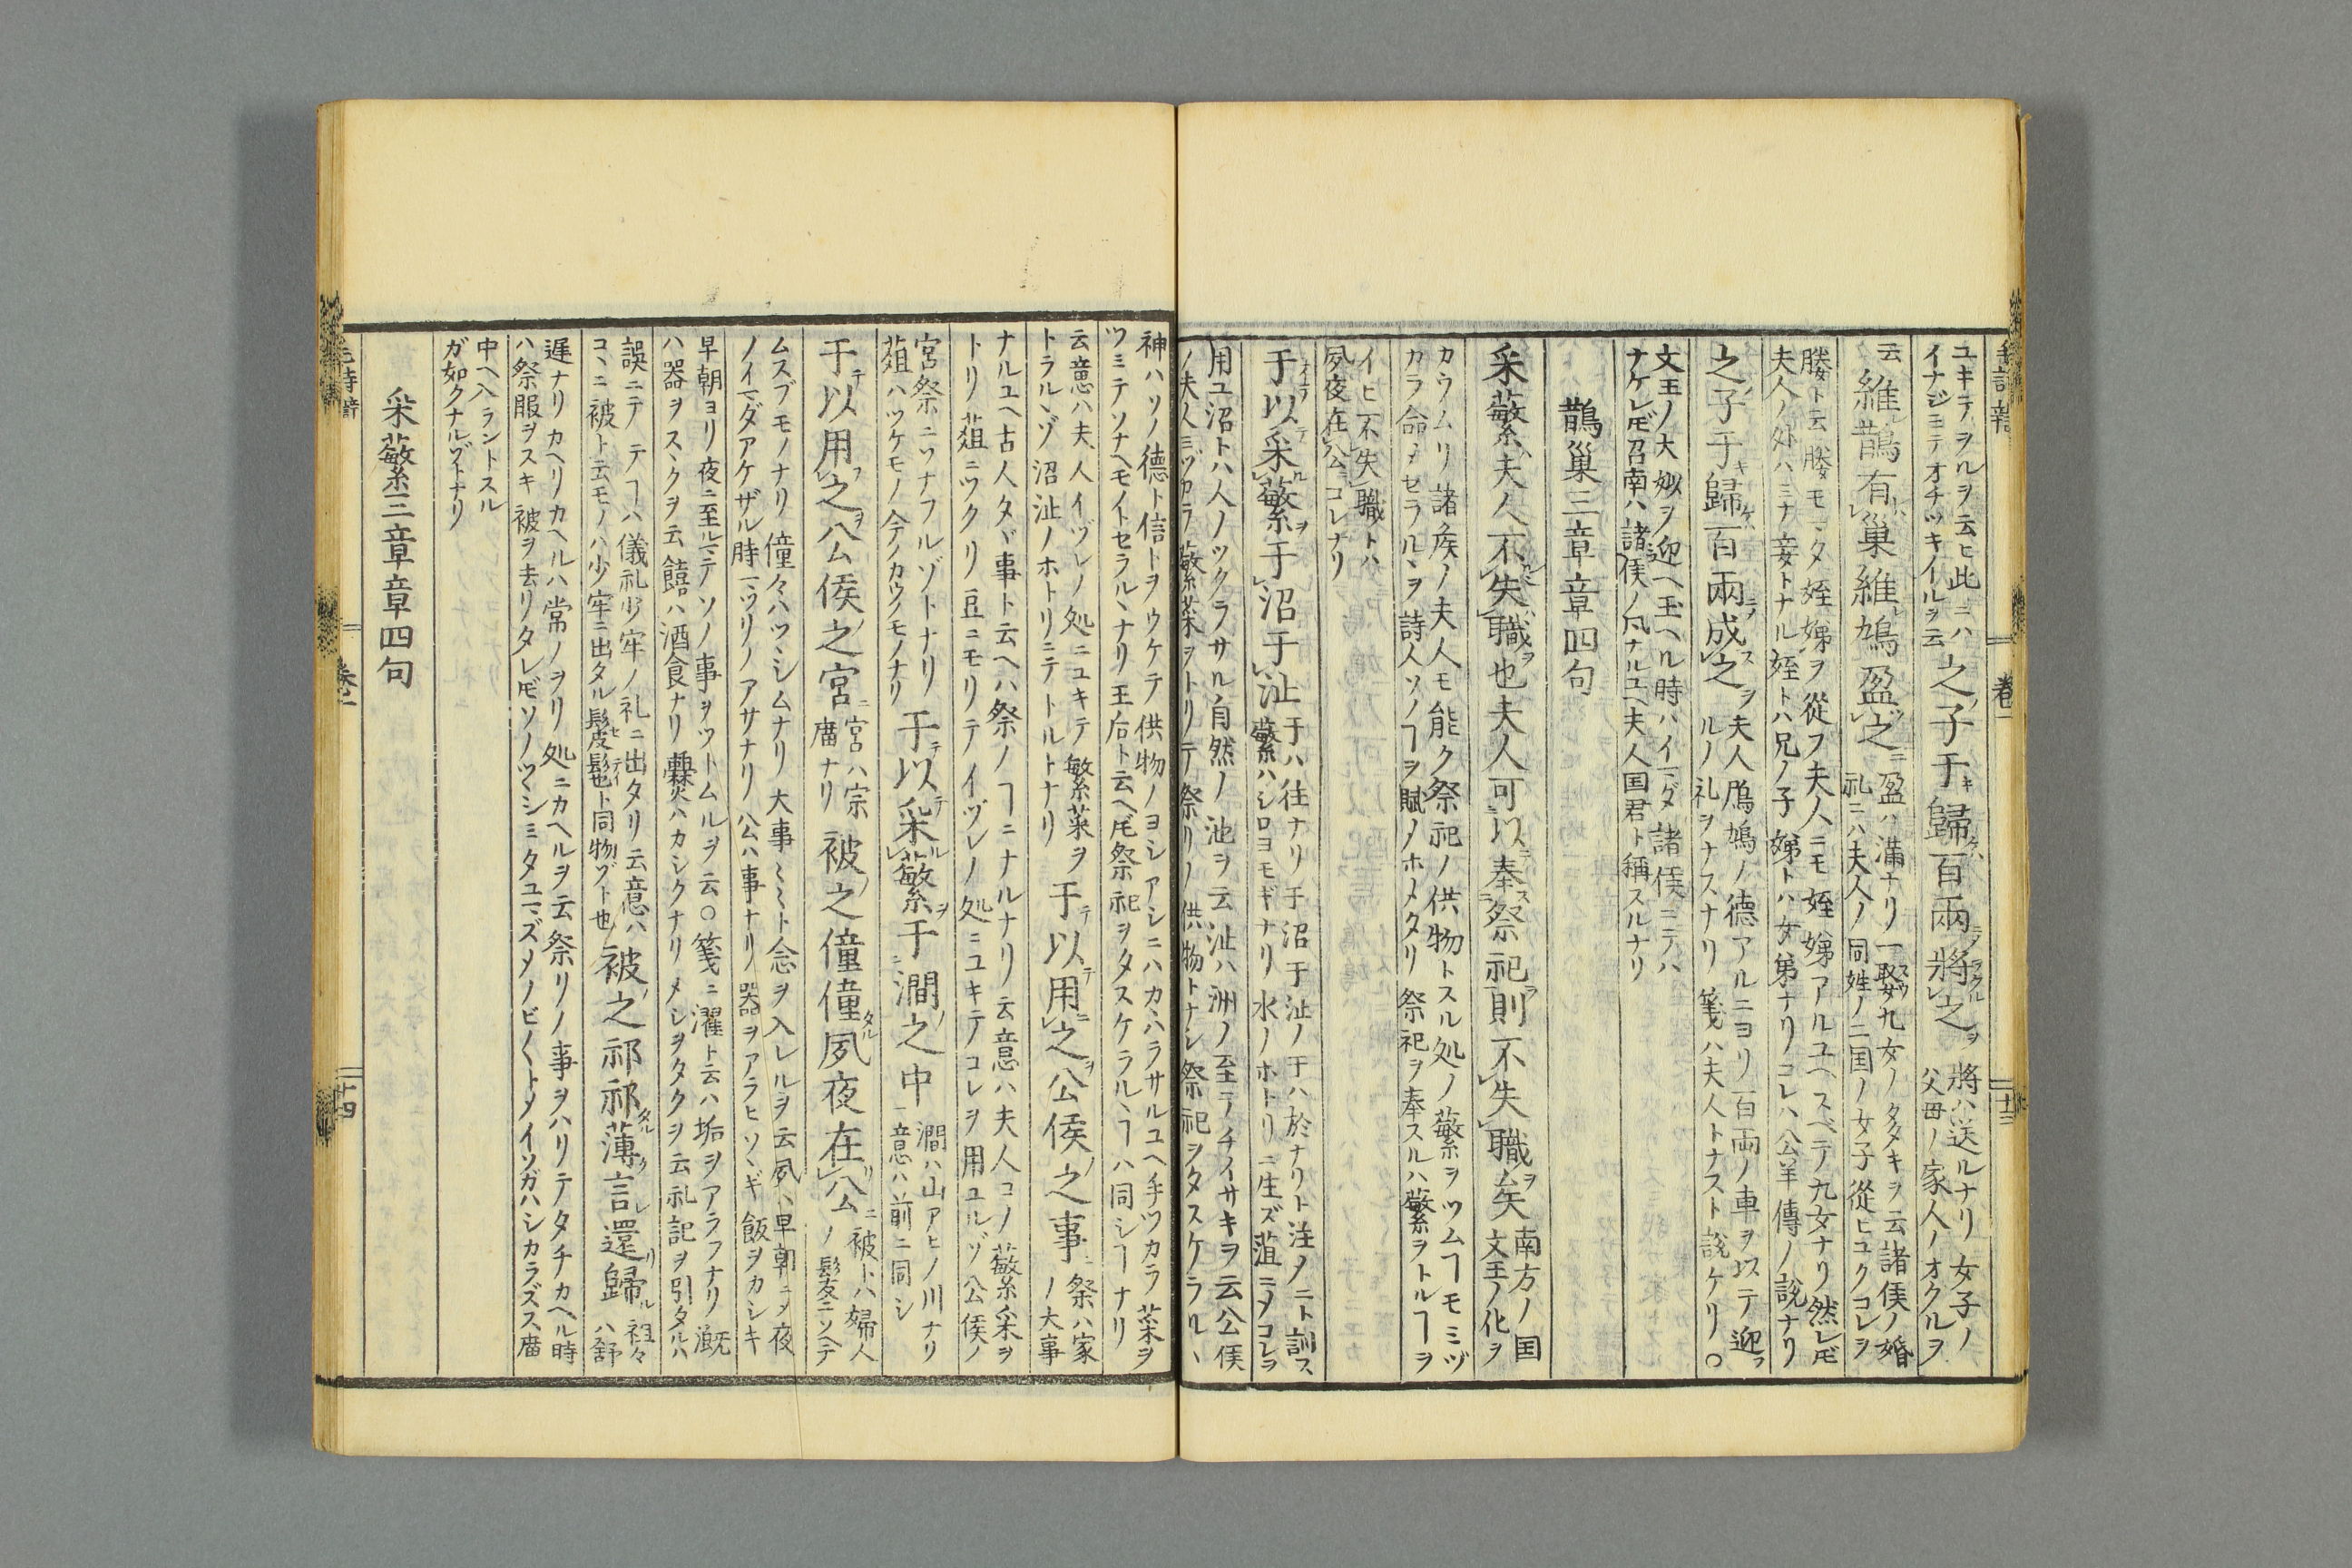 ユキテヲルヲ云ヒ此ニハ
イナジミテオチツキイルヲ云
之子于歸百兩將之
將ハ送ルナリ女子ノ
父母ノ家人ノオクルヲ
云
維鵲有巢維鳩盈之
盈ハ滿ナリ一娶九女ノ多キヲ云諸侯ノ婚
礼ニハ夫人ノ同姓ノ二国ノ女子從ヒユクコレヲ
媵ト云媵モマタ姪娣ヲ從フ夫人ニモ姪娣アルユヘスベテ九女ナリ然レ𪜈
夫人ノ外ハミナ妾トナル姪トハ兄ノ子娣トハ女弟ナリコレハ公羊傳ノ說ナリ
之子于歸百兩成之
夫人鳲鳩ノ德アルニヨリ百両ノ車ヲ以テ迎フ
ルノ礼ヲナスナリ箋ハ夫人トナスト說ケリ○
文王ノ大姒ヲ迎ヘ玉ヘル時ハイマダ諸侯ニテハ
ナケレ𪜈召南ハ諸侯ノ風ナルユヘ夫人国君ト稱スルナリ
鵲巢三章章四句
采蘩夫人不失職也夫人可以奉祭祀則不失職矣
南方ノ国
文王ノ化ヲ
カウムリ諸矦ノ夫人モ能ク祭祀ノ供物トスル処ノ蘩ヲツムヿモミヅ
カラ命セラルヽヲ詩人ソノヿヲ賦メホメタリ祭祀ヲ奉スルハ蘩ヲトルヿヲ
イヒ不失職トハ
夙夜在公コレナリ
于以采蘩于沼于沚
于ハ往ナリ于沼于沚ノ于ハ於ナリト注メニト訓ス
蘩ハシロヨモギナリ水ノホトリニ生ズ葅ニメコレヲ
用ユ沼トハ人ノツクラサル自然ノ池ヲ云沚ハ洲ノ至テチイサキヲ云公侯
ノ夫人ミヅカラ蘩菜ヲトリテ祭リノ供物トナシ祭祀ヲタスケラルヽ
神ハソノ德ト信トヲウケテ供物ノヨシアシニハカヽハラサルユヘ手ツカラ菜ヲ
ツミテソナヘモイトセラルヽナリ王后ト云ヘ𪜈祭祀ヲタスケラルヽヿハ同シヿナリ
云意ハ夫人イヅレノ処ニユキテ蘩菜ヲ
トラルヽゾ沼沚ノホトリニテトルトナリ
于以用之公侯之事
祭ハ家
ノ大事
ナルユヘ古人タヾ事ト云ヘハ祭ノヿニナルナリ云意ハ夫人コノ蘩采ヲ
トリ葅ニツクリ豆ニモリテイヅレノ処ニユキテコレヲ用ユルゾ公侯ノ
宮祭ニソナフルゾトナリ
葅ハツケモノ今ノカウノモノナリ
于以采蘩于澗之中
澗ハ山アヒノ川ナリ
一意ハ前ニ同シ
于以用之公侯之宮
宮ハ宗
廣ナリ
被之僮僮夙夜在公
被トハ婦人
ノ髮ニソヘテ
ムスブモノナリ僮々ハツヽシムナリ大事ミミト念ヲ入レルヲ云夙ハ早朝ニメ夜
ノイマダアケザル時マツリノアサナリ公ハ事ナリ器ヲアラヒソヽギ飯ヲカシキ
早朝ヨリ夜ニ至ルマテソノ事ヲツトムルヲ云○箋ニ濯ト云ハ垢ヲアラフナリ漑
ハ器ヲスヽクヲ云饎ハ酒食ナリ爨ハカシクナリメシヲタクヲ云礼記ヲ引タルハ
誤ニテテヿハ儀礼少牢ノ礼ニ出タリ云意ハ
コヽニ被ト云モノハ少牢ニ出タル髲髢ト同物ゾト也
被之祁祁薄言還歸
祖々
ハ舒
遲ナリカヘリカヘルハ常ノヲリ処ニカヘルヲ云祭リノ事ヲハリテタチカヘル時
ハ祭服ヲスキ被ヲ去リタレ𪜈ソノツヽシミタユマズメノビ〱トメイソガハシカラズス庿
中ヘ入ラントスル
ガ如クナルゾトナリ
采蘩三章章四句
卷一
十四